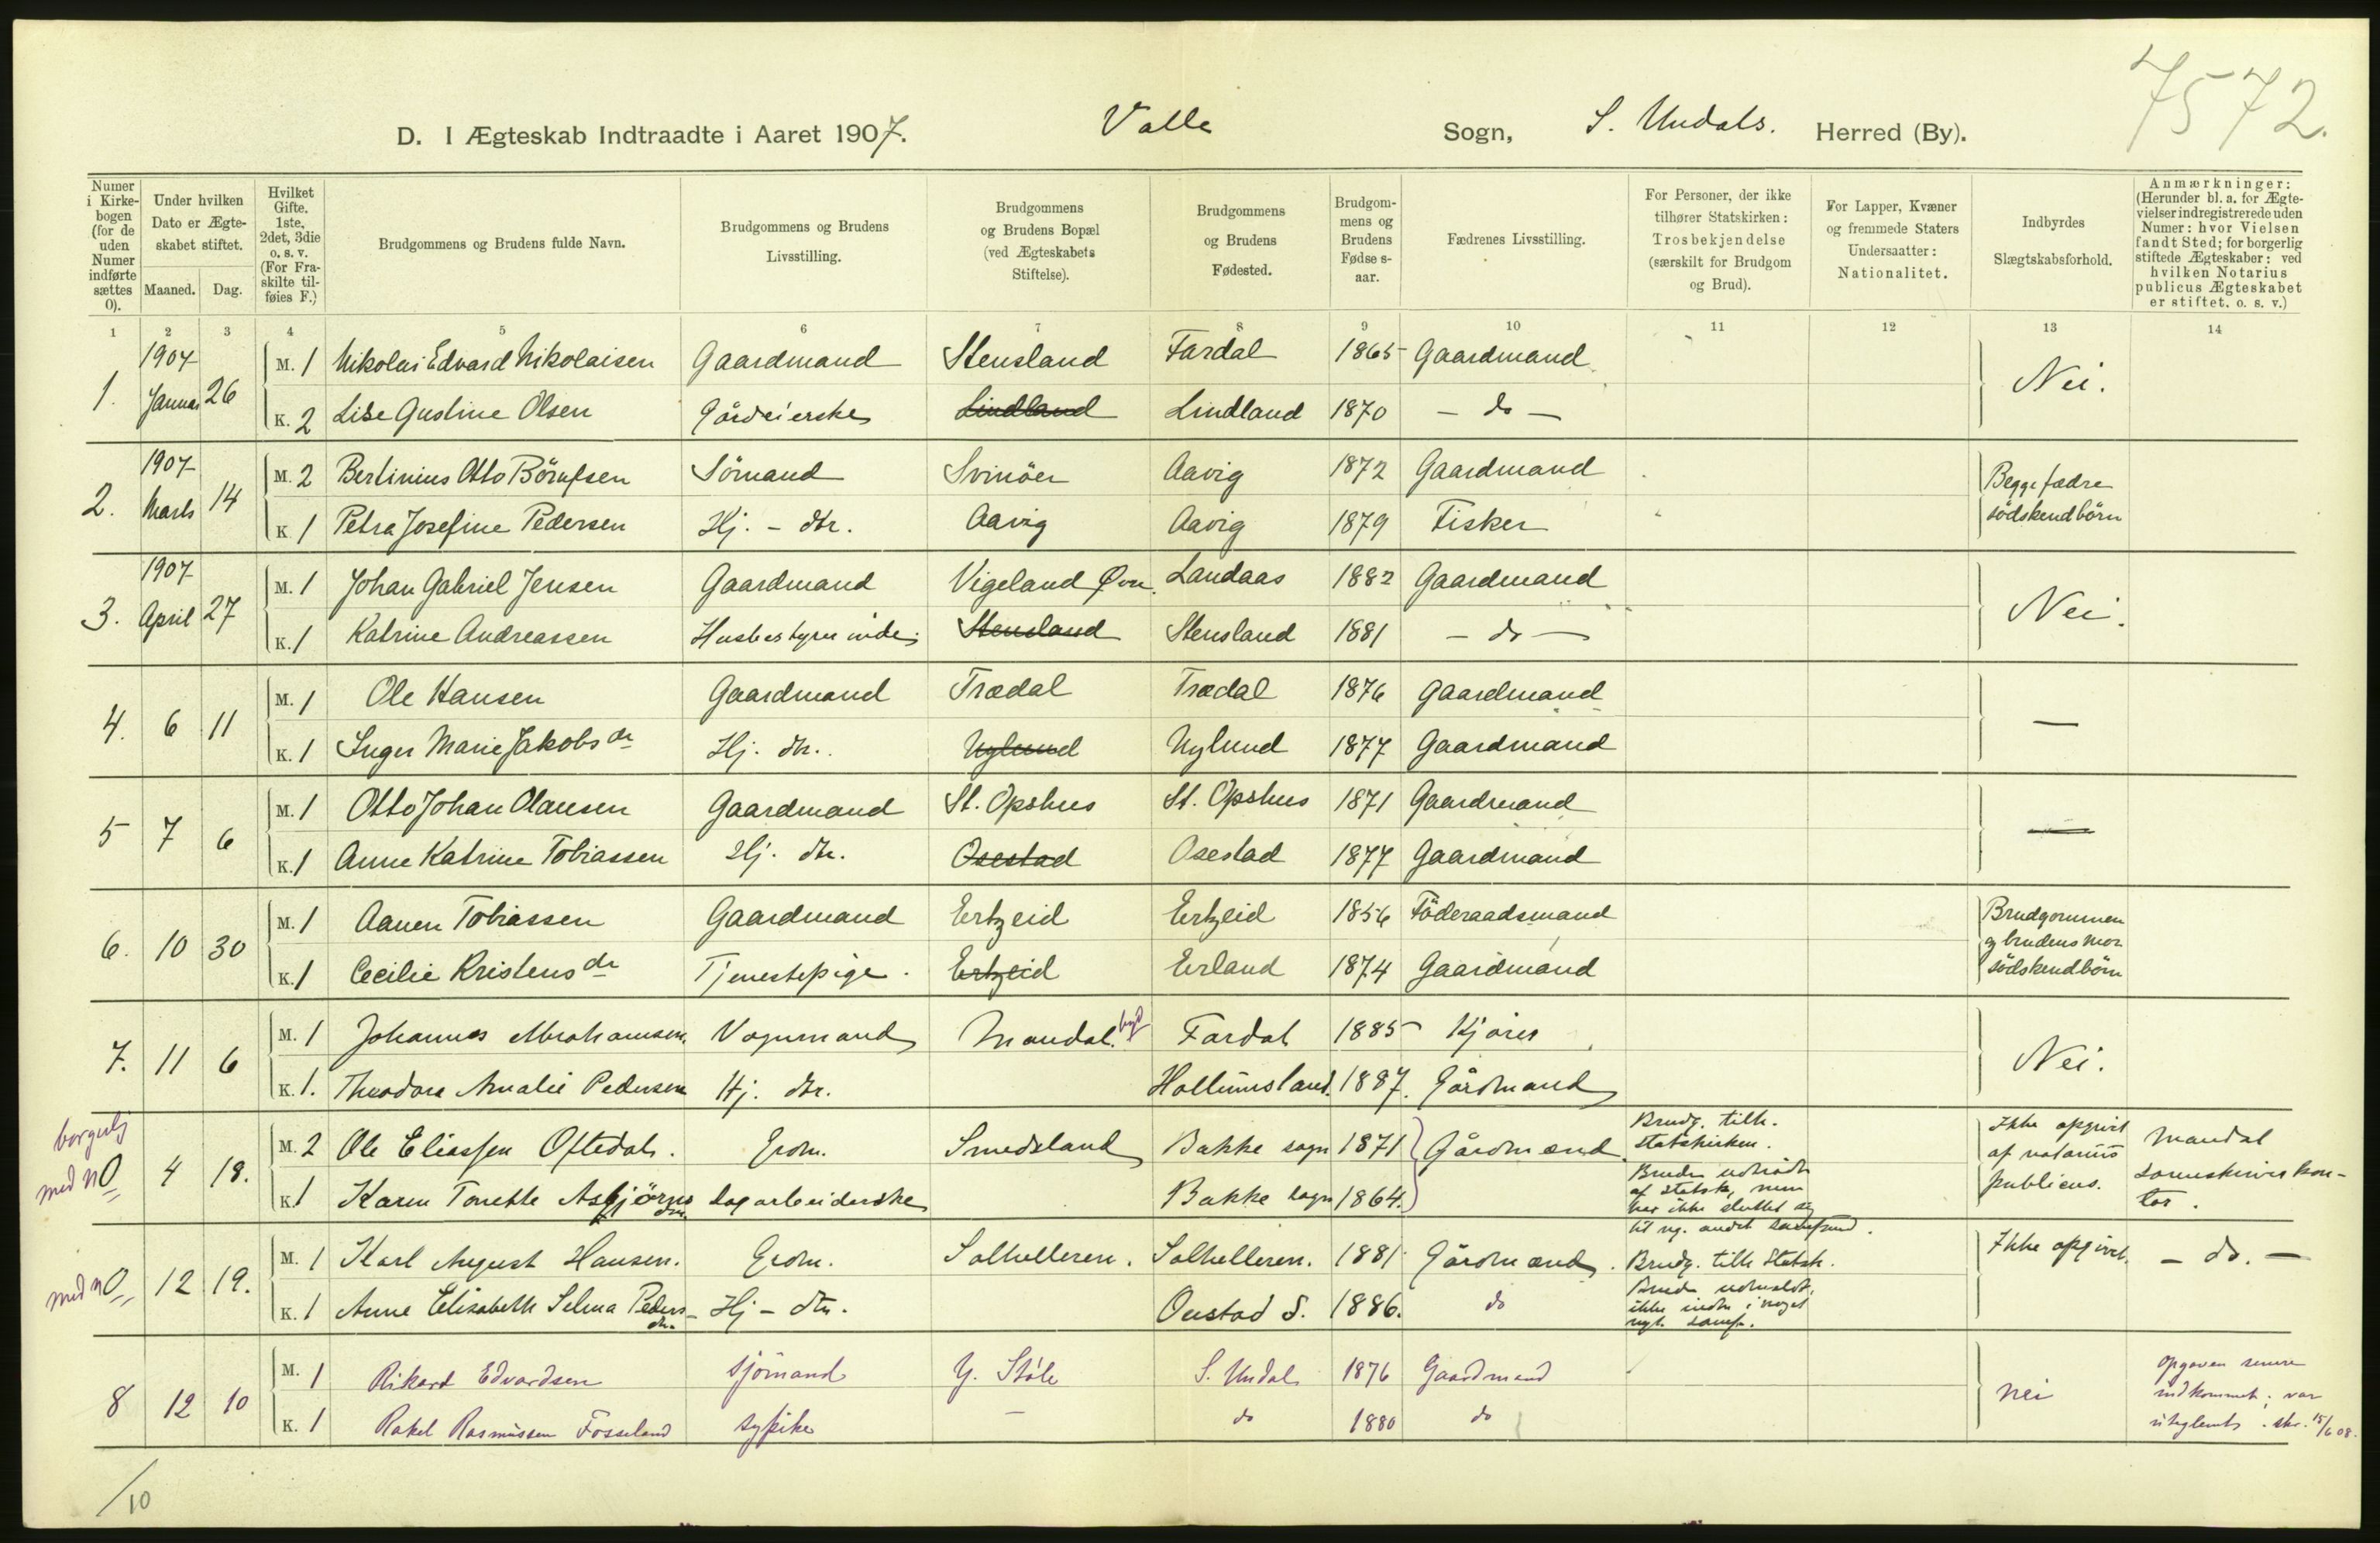 7572.
D. I Ægteskab Indtraadte i Aaret 1907. Valle Sogn, S. Undals. Herred (By).
Numer i Kirkebogen (for de uden Numer indførte sættes 0). | Under hvilken Dato er Ægteskabet stiftet. Maaned. Dag. | Hvilket Gifte. 1ste, 2det, 3die o. s. v. (For Fraskilte tilføies F.) | Brudgommens og Brudens fulde Navn. | Brudgommens og Brudens Livsstilling. | Brudgommens og Brudens Bopæl (ved Ægteskabets Stiftelse). | Brudgommens og Brudens Fødested. | Brudgommens og Brudens Fødselsaar. | Fædrenes Livsstilling. | For Personer, der ikke tilhører Statskirken: Trosbekjendelse (særskilt for Brudgom og Brud). | For Lapper, Kvæner og fremmede Staters Undersaatter: Nationalitet. | Indbyrdes Slægtskabsforhold. | Anmærkninger: (Herunder bl. a. for Ægtevielser indregistrerede uden Numer: hvor Vielsen fandt Sted; for borgerlig stiftede Ægteskaber: ved hvilken Notarius publicus Ægteskabet er stiftet, o. s. v.)
1 2 3 4 5 6 7 8 9 10 11 12 13 14
1. 1907 Januar 26 M. 1 Nikolai Edvard Nikolaisen Gaardmand Stensland Fardal 1865 Gaardmand Nei.
K. 2 Lise Gustine Olsen Gårdeierske Lindland Lindland 1870 – do –
2. 1907 Marts 14 M. 2 Bertinius Otto Börufsen Sömand Svinöer Aavig 1872 Gaardmand Begge fædre
K. 1 Petra Josefine Pedersen Hj. - dtr. Aavig Aavig 1879 Fisker södskendbörn
3. 1907 April 27 M. 1 Johan Gabriel Jensen Gaardmand Vigeland Øvr. Landaas 1882 Gaardmand Nei.
K. 1 Katrine Andreassen Husbestyrerinde Stensland Stensland 1881 – do –
4. 6 11 M. 1 Ole Hansen Gaardmand Trædal Trædal 1876 Gaardmand —
K. 1 Inger Marie Jakobsdr Hj. dtr. Nylund Nylund 1877 Gaardmand
5 7 6 M. 1 Otto Johan Olausen Gaardmand St. Opshus St. Opshus 1871 Gaardmand —
K. 1 Anne Katrine Tobiassen Hj. dtr. Osestad Osestad 1877 Gaardmand
6. 10 30 M. 1 Aanen Tobiassen Gaardmand Ertzeid Ertzeid 1856 Föderaadsmand Brudgommen og brudens mor
K. 1 Cecilie Kristensdr Tjenestepige. Ertzeid Erland 1874 Gaardmand södskendbörn
7. 11 6 M. 1 Johannes Abrahamsen. Vognmand Mandal. by Fardal 1885 Kjörer Nei.
K. 1. Theodora Amalie Pedersen Hj. dtr. Hollumsland. 1887. Gårdmand
borgerlig
med N 0 4 18. M. 2 Ole Eliassen Oftedal. Grdm. Smedsland Bakke sogn 1871 Gårdmænd. Brudg. tilh. statskirken. Ikke opgivet af notarius publicus. Mandal sorenskriverkontor.
K. 1 Karen Tonette Asbjörnsdtr. dagarbeiderske Bakke sogn 1864. Bruden udtrådt af statsk., men har ikke sluttet sig til ng. andet samfund.
med N 0 12 19. M. 1 Karl August Hansen. Grdm. Solhelleren. Solhelleren. 1881 Gårdmand. Brudg. tilh. Statsk. Ikke opgivet. – do. –
K. 1 Anne Elisabeth Selma Pedersdtr. Hj - dtr. Oustad S. 1886. do Brud udmeldt, ikke indtr. i noget nyt samf.
8 12 10 M. 1 Rikard Edvardsen sjömand Y. Ståle S. Undal 1876 Gaardmand nei Opgaven senere indkommet; var
K. 1 Rakel Rasmussen Fosseland sypike — do 1880 do uteglemt. skr. 15/6 08.
/10